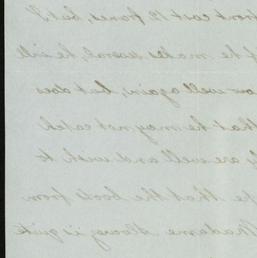 cost 12 francs, but I
he makes several, he will
well again, but does
that he may not catch
are well and wish to
that the boots from
Madame is quite